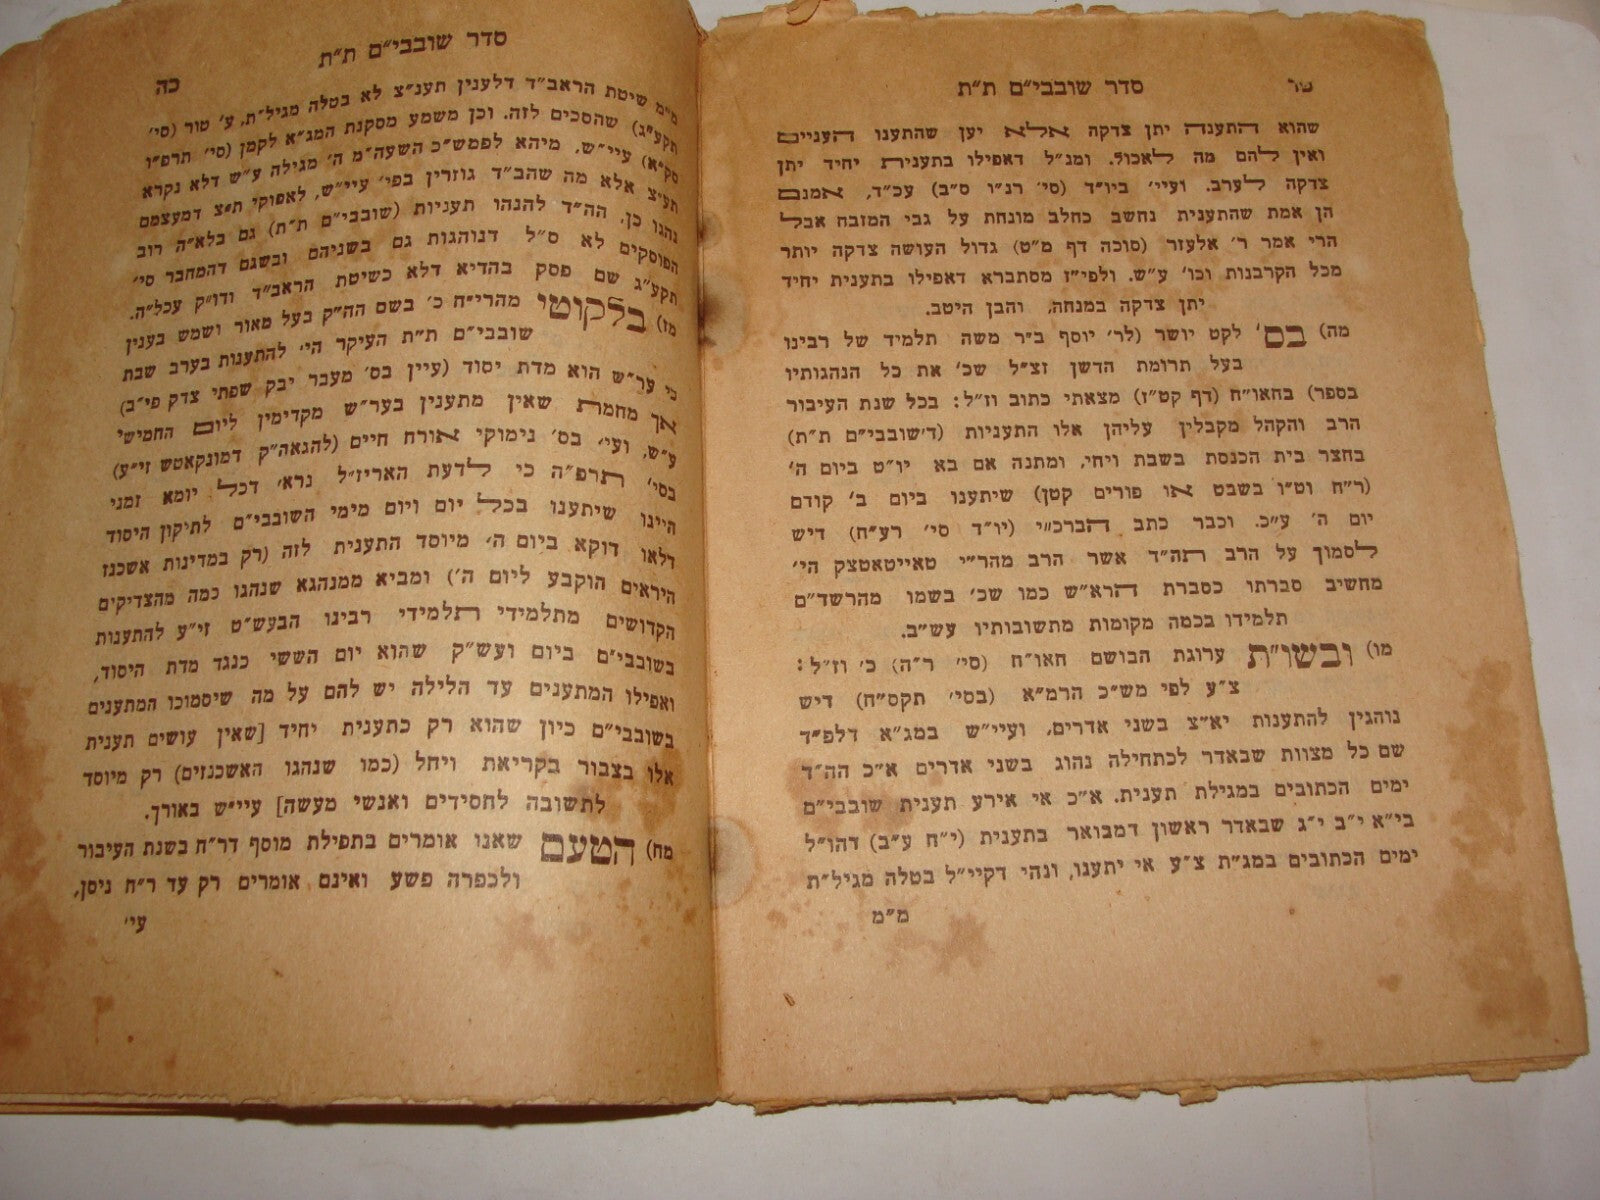 סדר שובבי״ם ת״ת
שהוא התענה יתן צדקה אלא יען שהתענו העניים
ואין להם מה לאכול. ומג״ל דאפילו בתענית יחיד יתן
צדקה לערב. ועיי׳ ביו״ד (סי׳ רנ״ו ס״ב) עכ״ד, אמנם
הן אמת שהתענית נחשב כחלב מונחת על גבי המזבח אבל
הרי אמר ר׳ אלעזר (סוכה דף מ״ט) גדול העושה צדקה יותר
מכל הקרבנות וכו׳ ע״ש. ולפי״ז מסתברא דאפילו בתענית יחיד
יתן צדקה במנחה, והבן היטב.
מה) בס׳ לקט יושר (לר׳ יוסף ב״ר משה תלמיד של רבינו
בעל תרומת הדשן זצ״ל שכ׳ את כל הנהגותיו
בספר) בחאו״ח (דף קט״ז) מצאתי כתוב וז״ל: בכל שנת העיבור
הרב והקהל מקבלין עליהן אלו התעניות (ד׳שובבי״ם ת״ת)
בחצר בית הכנסת בשבת ויחי, ומתנה אם בא יו״ט ביום ה׳
(ר״ח וט״ו בשבט או פורים קטן) שיתענו ביום ב׳ קודם
יום ה׳ ע״כ. וכבר כתב הברכ״י (יו״ד סי׳ רע״ח) דיש
לסמוך על הרב תה״ד אשר הרב מהר״י טאייטאטצק הי׳
מחשיב סברתו כסברת הרא״ש כמו שכ׳ בשמו מהרשד״ם
תלמידו בכמה מקומות מתשובותיו עש״ב.
מו) ובשו״ת ערוגת הבושם חאו״ח (סי׳ ר״ה) כ׳ וז״ל:
צ״ע לפי מש״כ הרמ״א (בסי׳ תקס״ח) דיש
נוהגין להתענות יא״צ בשני אדרים, ועיי״ש במג״א דלפ״ד
שם כל מצוות שבאדר לכתחילה נהוג בשני אדרים א״כ הה״ד
ימים הכתובים במגילת תענית. א״כ אי אירע תענית שובבי״ם
בי״א י״ב י״ג שבאדר ראשון דמבואר בתענית (י״ח ע״ב) דהו״ל
ימים הכתובים במג״ת צ״ע אי יתענו, ונהי דקיי״ל בטלה מגיל״ת
מ״מ
סדר שובבי״ם ת״ת
כה
מ״מ שיטת הראב״ד דלענין תענ״צ לא בטלה מגיל״ת, ע׳ טור (סי׳
תקע״ג) שהסכים לזה. וכן משמע מסקנת המג״א לקמן (סי׳ תרפ״ו
סק״א) עיי״ש, מיהא לפמש״כ השעה״מ ה׳ מגילה ע״ש דלא נקרא
תע״צ אלא מה שהב״ד גוזרין בפי׳ עיי״ש, לאפוקי ת״צ דמעצמם
נהגו כן, הה״ד להנהו תעניות (שובבי״ם ת״ת) גם בלא״ה רוב
הפוסקים לא ס״ל דנוהגות גם בשניהם ובשגם דהמחבר סי׳
תקע״ג שם פסק בהדיא דלא כשיטת הראב״ד ודו״ק עכל״ה.
מז) בלקוטי מהרי״ח כ׳ בשם הה״ק בעל מאור ושמש בענין
שובבי״ם ת״ת העיקר הי׳ להתענות בערב שבת
כי ער״ש הוא מדת יסוד (עיין בס׳ מעבר יבק שפתי צדק פי״ב)
אך מחמת שאין מתענין בער״ש מקדימין ליום החמישי
ע״ש, ועי׳ בס׳ נימוקי אורח חיים (להגאה״ק דמונקאטש זי״ע)
בסי׳ תרפ״ה כי לדעת האריז״ל נרא׳ דכל יומא זמני
היינו שיתענו בכל יום ויום מימי השובבי״ם לתיקון היסוד
דלאו דוקא ביום ה׳ מיוסד התענית לזה (רק במדינות אשכנז
היראים הוקבע ליום ה׳) ומביא ממנהגא שנהגו כמה מהצדיקים
הקדושים מתלמידי תלמידי רבינו הבעש״ט זי״ע להתענות
בשובבי״ם ביום ועש״ק שהוא יום הששי כנגד מדת היסוד,
ואפילו המתענים עד הלילה יש להם על מה שיסמוכו המתענים
בשובבי״ם כיון שהוא רק כתענית יחיד [שאין עושים תענית
אלו בצבור בקריאת ויחל (כמו שנהגו האשכנזים) רק מיוסד
לתשובה לחסידים ואנשי מעשה] עיי״ש באורך.
מח) הטעם שאנו אומרים בתפילת מוסף דר״ח בשנת העיבור
ולכפרה פשע ואינם אומרים רק עד ר״ח ניסן,
עי׳